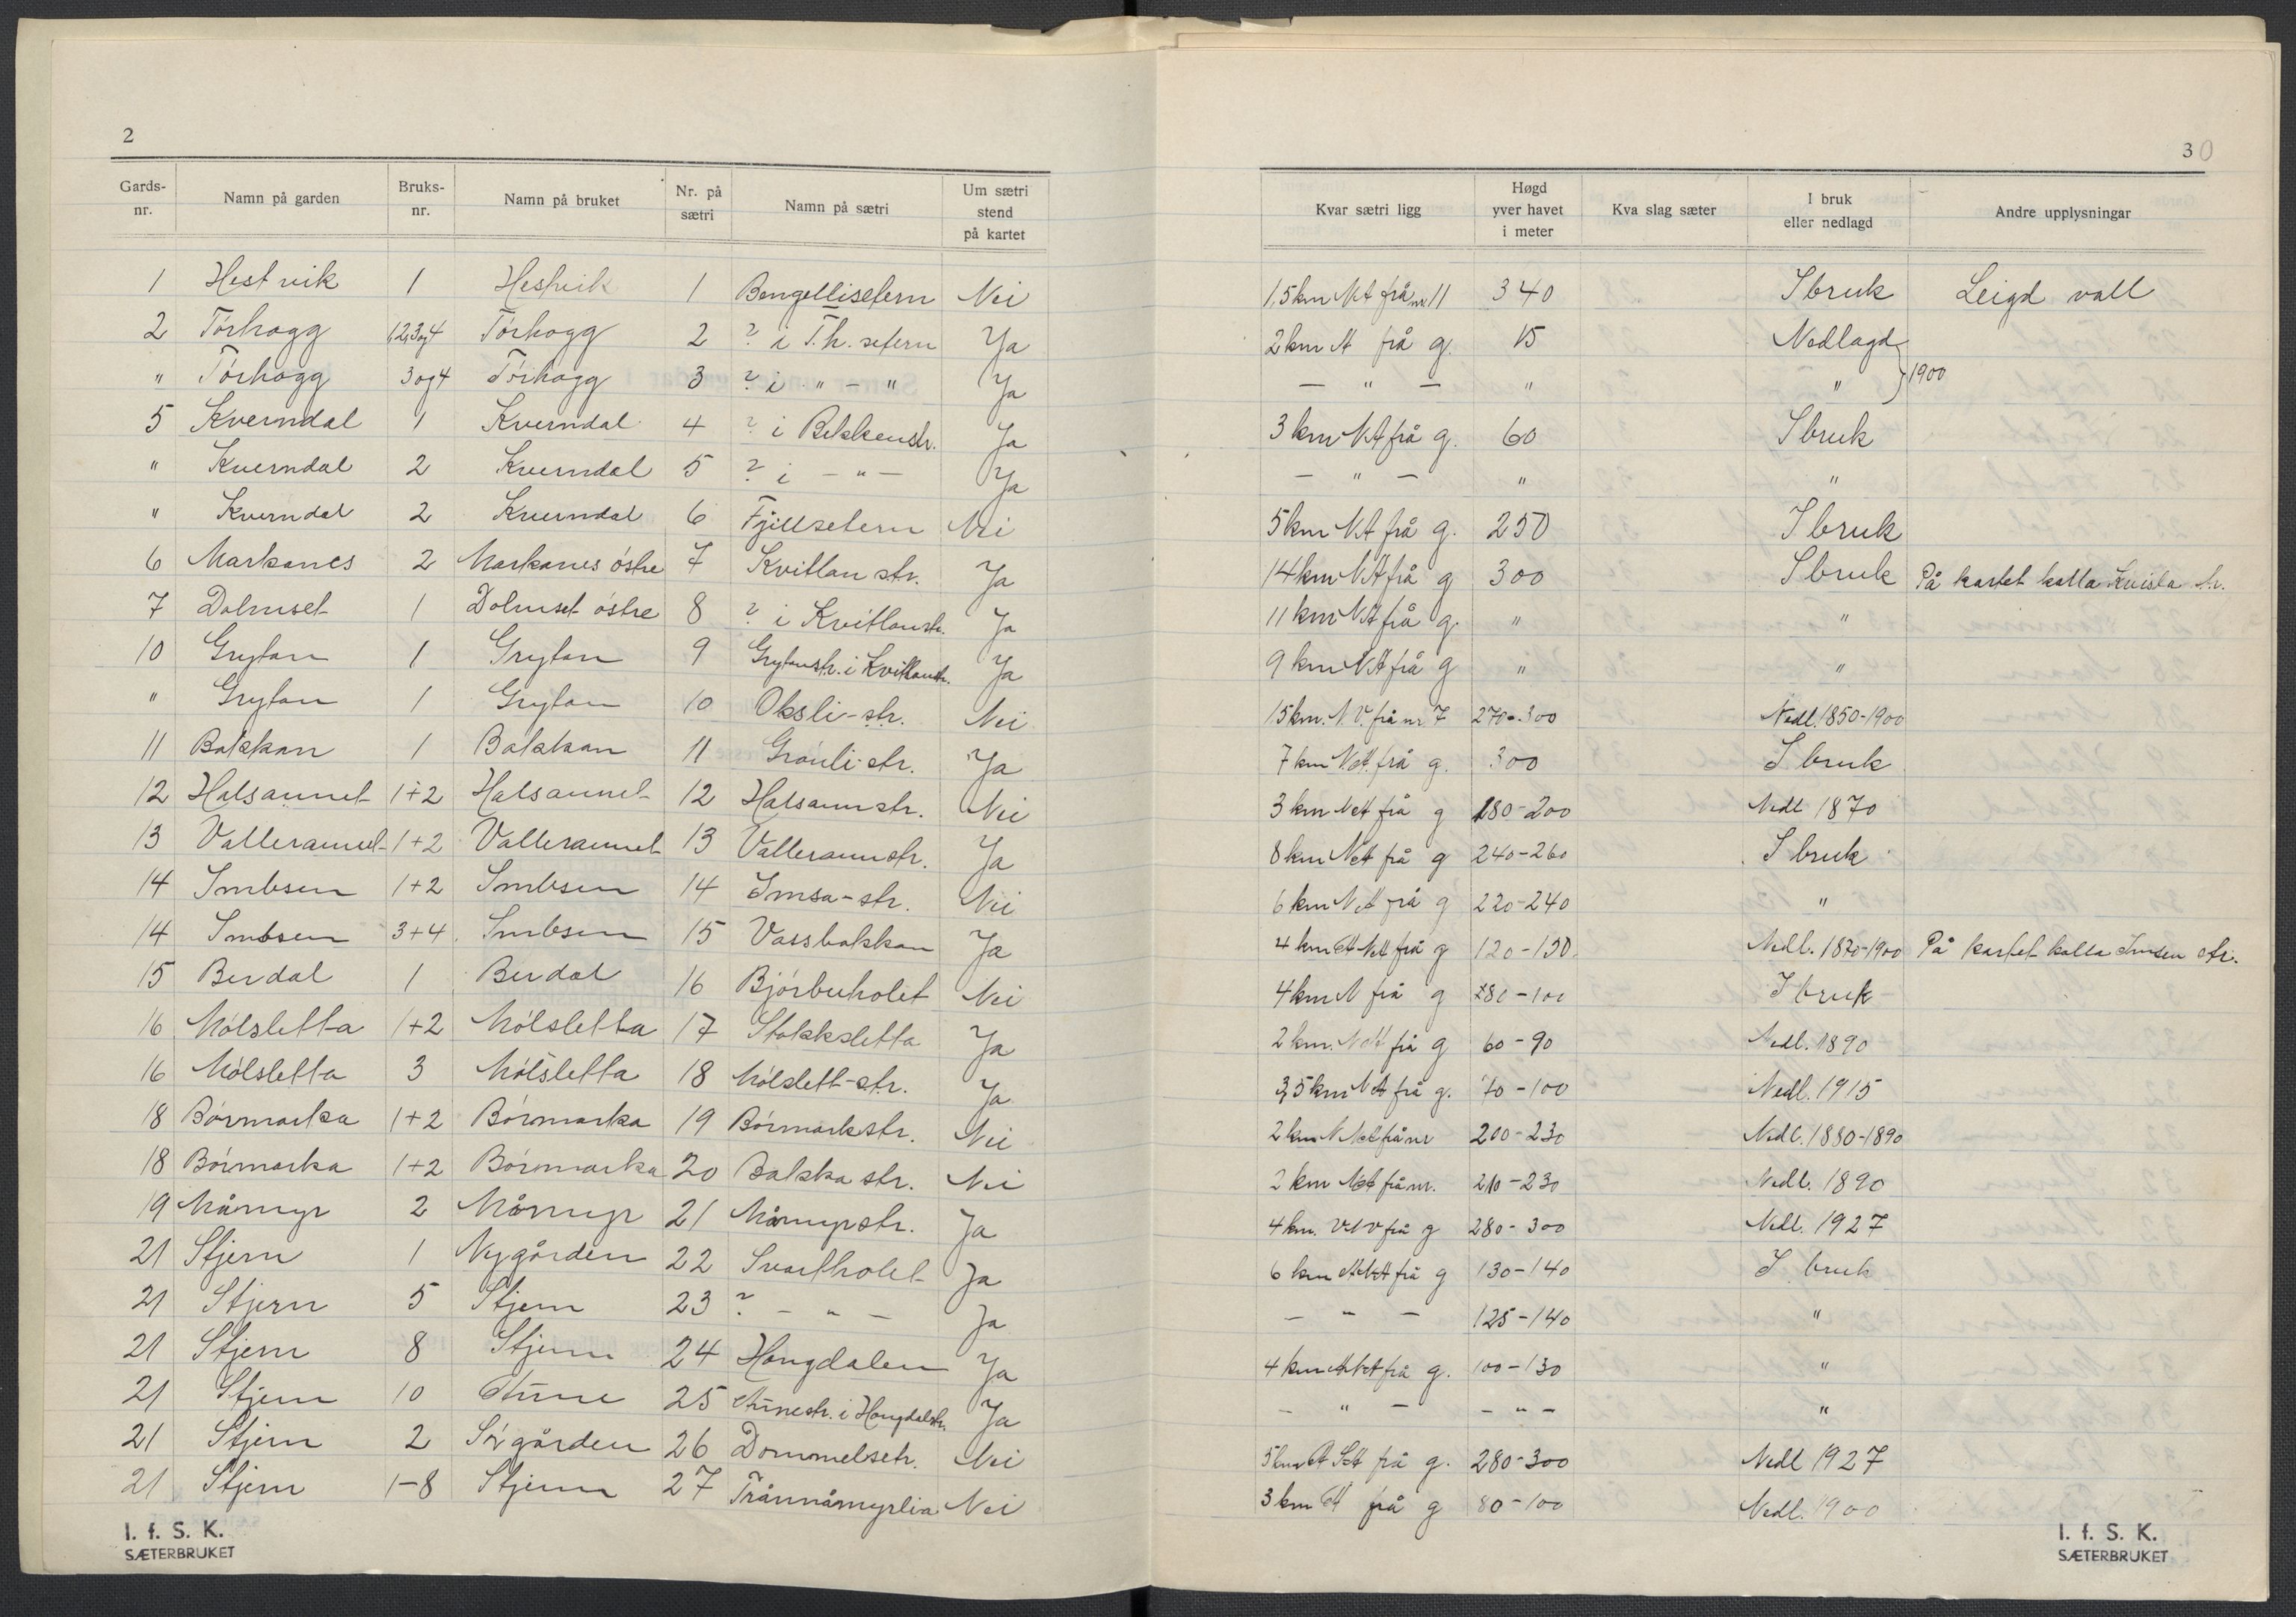 2
Gards-nr. Namn på garden Bruks-nr. Namn på bruket Nr. på sætri Namn på sætri Um sætri stend på kartet
1 Hestvik 1 Hestvik 1 Bengellisetern Nei
2 Tórhogg 1,2,3og4 Tórhogg 2 ? i T.h. setern Ja
" Tórhogg 3og4 Tórhogg 3 ? i " - " Ja
5 Kverndal 1 Kverndal 4 ? i Bekkenstr. Ja
" Kverndal 2 Kverndal 5 ? i - " - Ja
" Kverndal 2 Kverndal 6 Fjellsetern Nei
6 Markanes 2 Markanes óstre 7 Kvitlan str. Ja
7 Dolmset 1 Dolmset óstre 8 ? i Kvitlanstr. Ja
10 Grytan 1 Grytan 9 Grytanstr. i Kvitlanstr. Ja
" Grytan 1 Grytan 10 Oksli-str. Nei
11 Bakkan 1 Bakkan 11 Grónli-str. Ja
12 Halsaunet 1+2 Halsaunet 12 Halsaunstr. Nei
13 Valleraunet 1+2 Valleraunet 13 Valleraunstr. Ja
14 Imbsen 1+2 Imbsen 14 Imsa-str. Nei
14 Imbsen 3+4 Imbsen 15 Vassbakkan Ja
15 Berdal 1 Berdal 16 Bjórbuholet Nei
16 Mólsletta 1+2 Mólsletta 17 Stokksletta Ja
16 Mólsletta 3 Mólsletta 18 Mólslett-str. Ja
18 Bórmarka 1+2 Bórmarka 19 Bórmarkstr. Nei
18 Bórmarka 1+2 Bórmarka 20 Bakka str. Nei
19 Mårmyr 2 Mårmyr 21 Mårmyrstr. Ja
21 Stjern 1 Nygården 22 Svartholet Ja
21 Stjern 5 Stjern 23 ? - " - Ja
21 Stjern 8 Stjern 24 Hongdalen Ja
21 Stjern 10 Aune 25 Aunestr. i Hongdalstr. Ja
21 Stjern 2 Sórgården 26 Dommelsetr. Nei
21 Stjern 1-8 Stjern 27 Trånnåmyrlia Nei
I. f. S. K.
SÆTERBRUKET
30
Kvar sætri ligg Høgd yver havet i meter Kva slag sæter I bruk eller nedlagd Andre upplysningar
1,5 km NA frå nr 11 340 I bruk Leigd vall
2 km A frå g. 15 Nedlagd
- " - " " } 1900
3 km NA frå g. 60 I bruk
- " - " "
5 km NA frå g. 250 I bruk
14 km NA frå g 300 I bruk På kartet kalla Kvisla str.
11 km NA frå g. " "
9 km NA frå g " "
15 km. N.V. frå nr 7 270-300 Nedl. 1850-1900
7 km NA. frå g. 300 I bruk
3 km NA frå g 180-200 Nedl 1870
8 km NA frå g 240-260 I bruk
6 km NA frå g 220-240 "
4 km ANA frå g 120-150. Nedl. 1870-1900 På kartet kalla Imsen str.
4 km N frå g 80-100 I bruk
2 km. NA frå g 60-90 Nedl. 1890
3,5 km NA frå g. 70-100 Nedl. 1915
2 km NNA frå nr 200-230 Nedl. 1880-1890
2 km NA frå nr. 210-230 Nedl. 1890
4 km. VNV frå g 280-300 Nedl. 1927
6 km ANA frå g 130-140 I bruk
- " - 125-140 "
4 km ANA frå g. 100-130 "
- " - - " - "
5 km A SA frå g. 280-300 Nedl 1927
3 km A frå g 80-100 Nedl. 1900
I. f. S. K.
SÆTERBRUKET